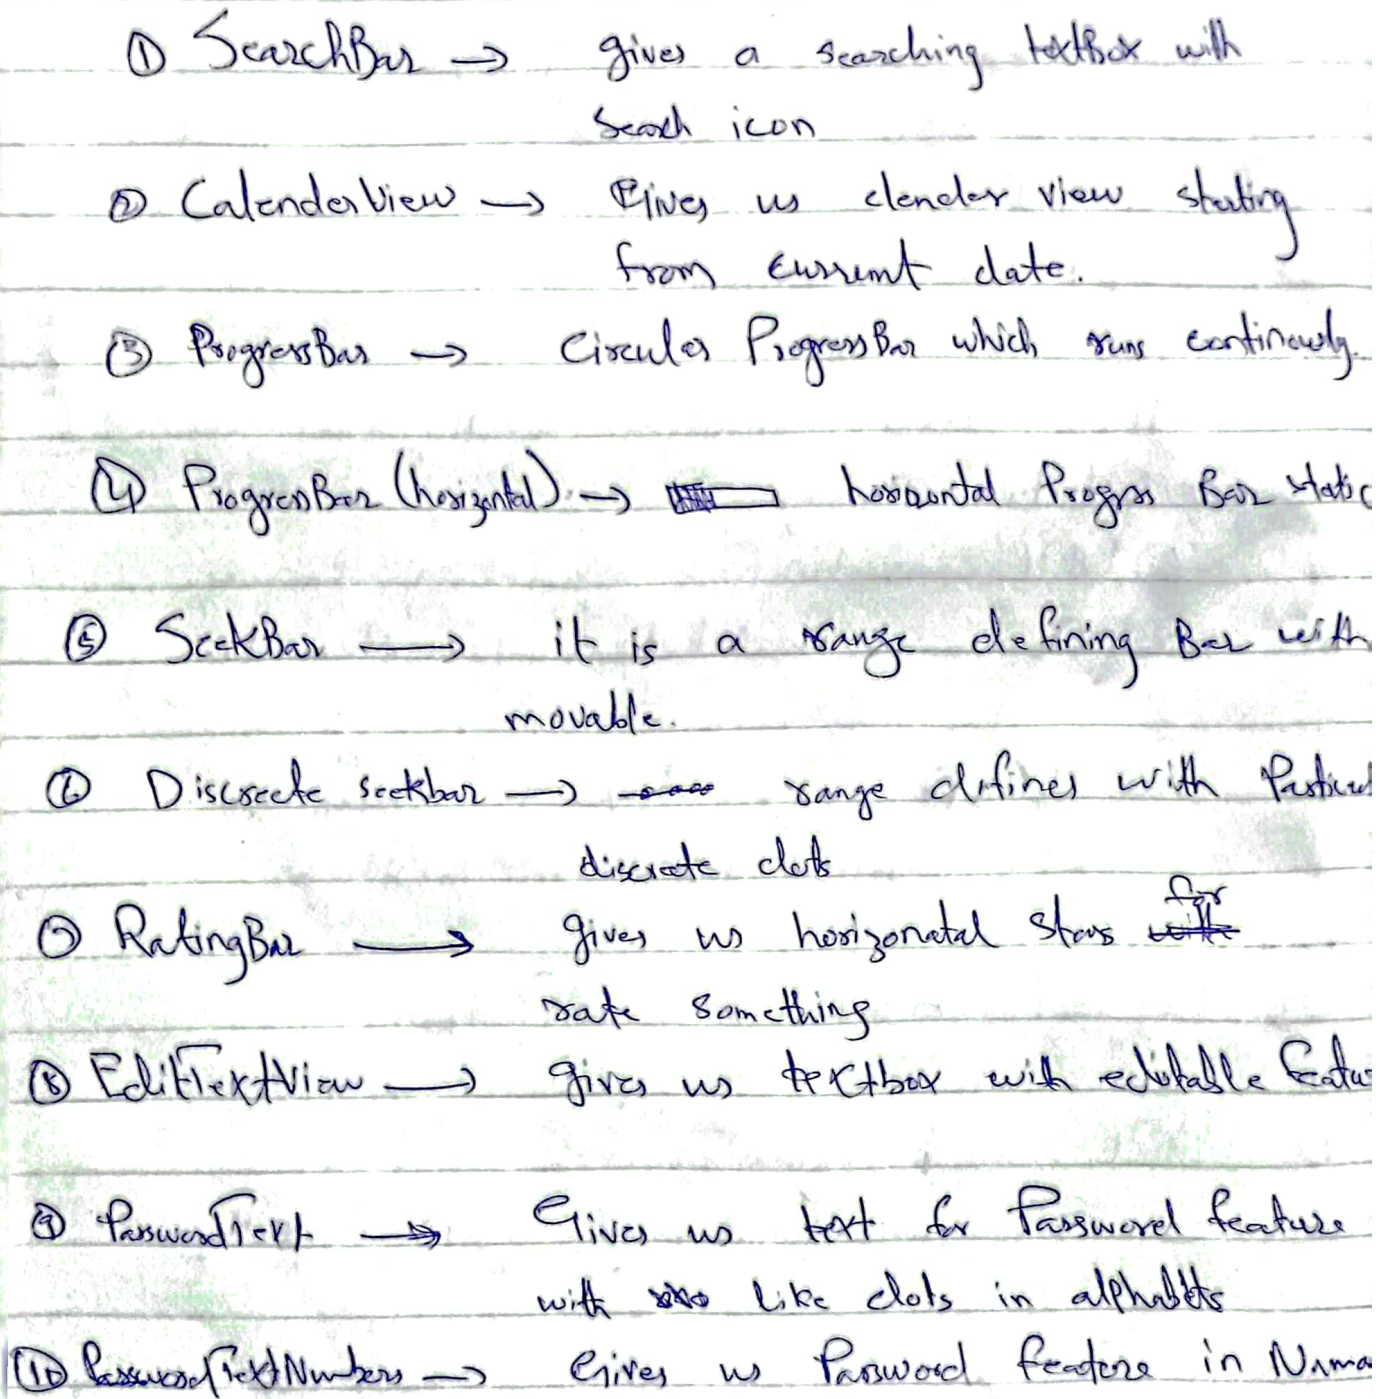 ① SearchBar → gives a searching textBox with
Search icon
② CalenderView → Gives us clender view starting
from current date.
③ ProgressBar → Circular ProgressBar which runs continously.
④ ProgressBar (horizontal) → horizontal Progress Bar static
⑤ SeekBar → it is a range defining Bar with
movable.
⑥ Discreete seekbar → range difines with Particul
discrete dots
⑦ RatingBar → gives us horizonatal stars for
rate something
⑧ EditTextView → gives us textbox with editable featur
⑨ PasswordText → Gives us text for Password feature
with like dots in alphabets
⑩ PasswordTextNumbers → Gives us Password feature in Numa